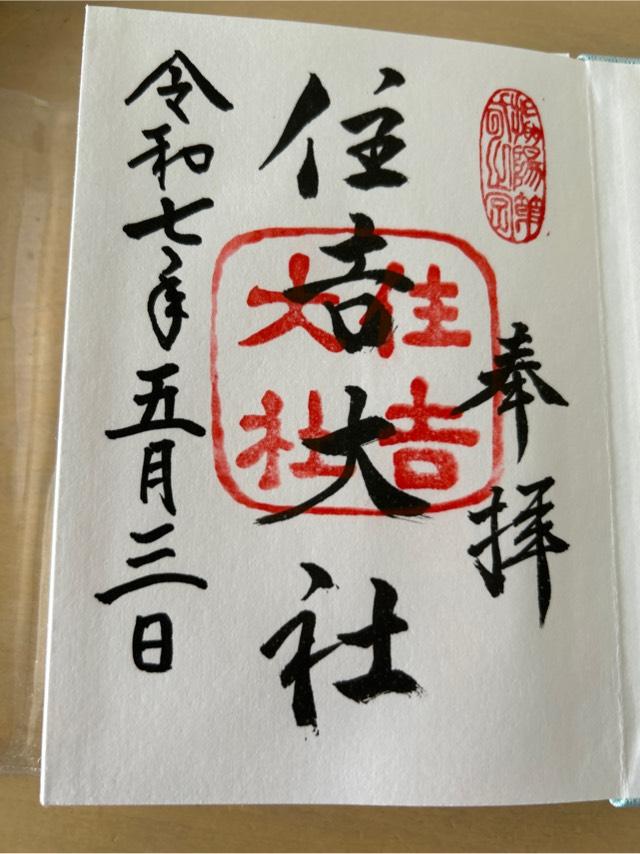 奉拝
住吉大社
住吉
大社
令和七年五月三日